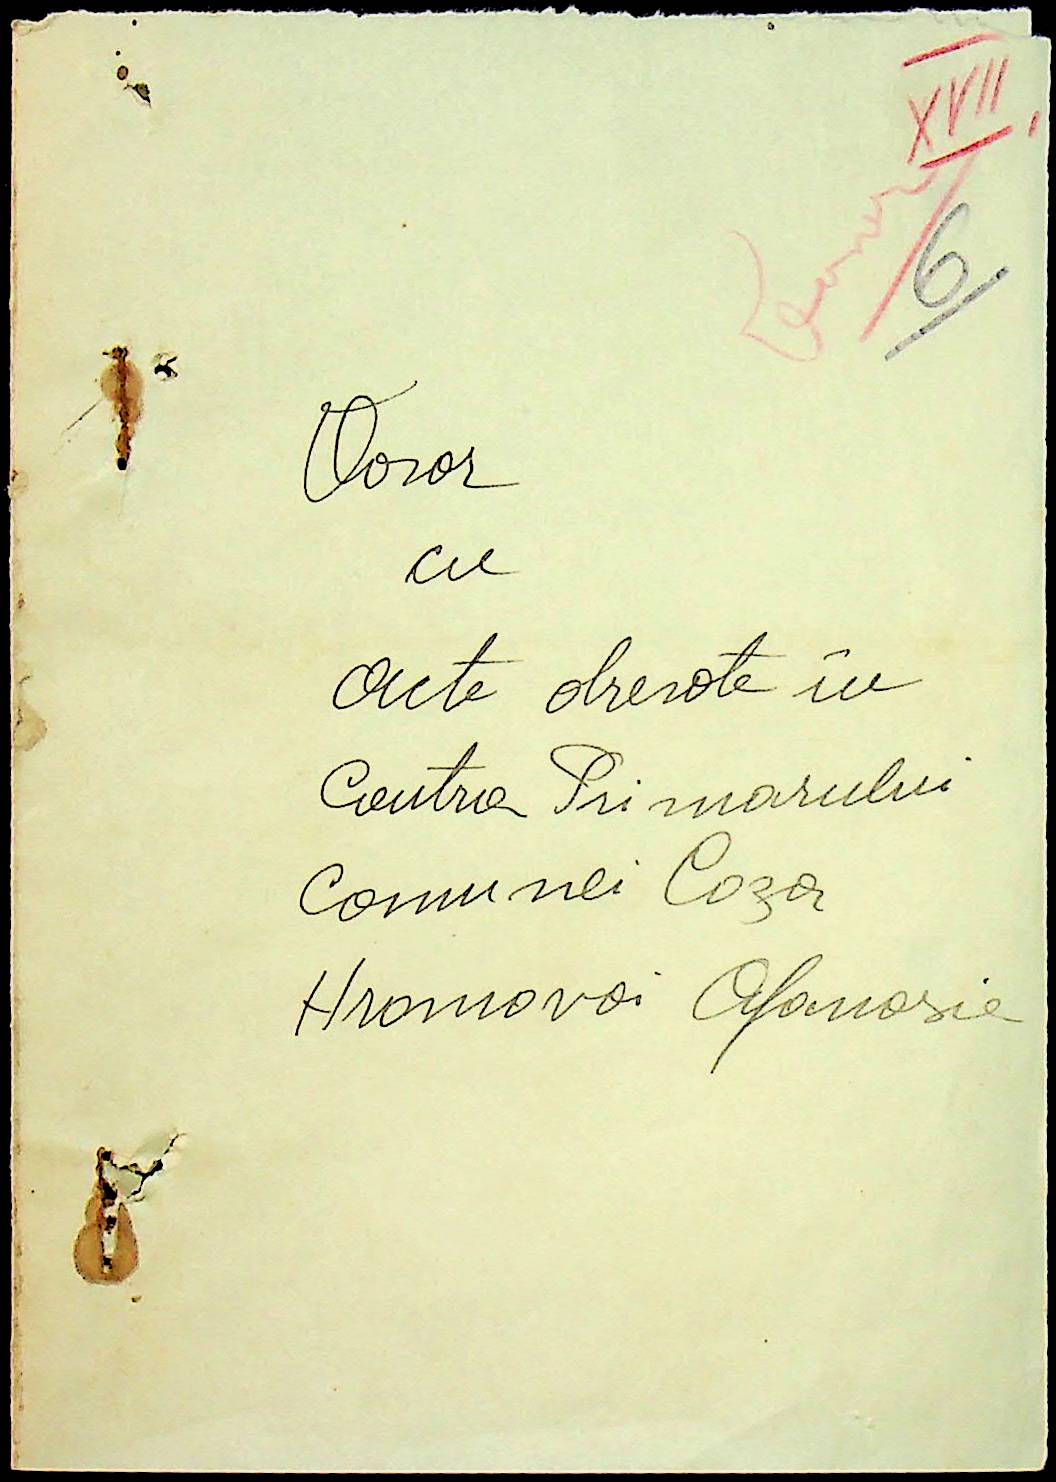 XVII
6
Dosar
cu
Acte dresate în
Contra Primarului
Comunei Coza
Hramovoi Afanasie